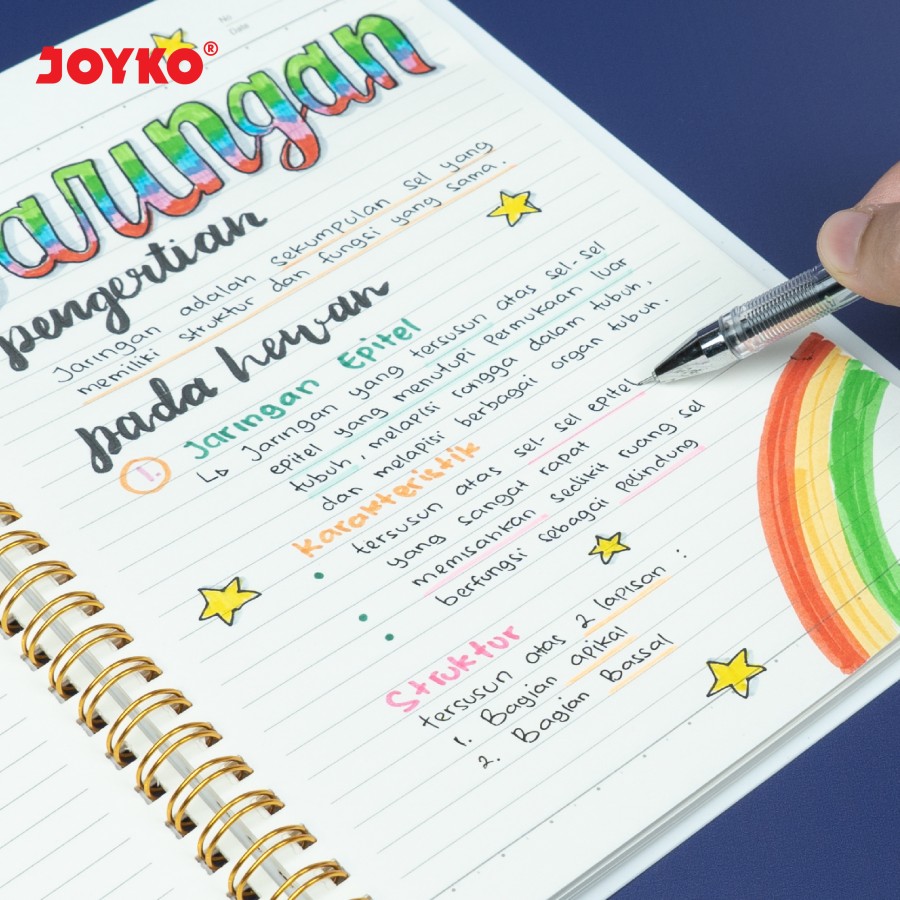 JOYKO®
No
Date
aringan
pengertian
Jaringan adalah sekumpulan sel yang
memiliki struktur dan fungsi yang sama.
pada hewan
1. Jaringan Epitel
↳ Jaringan yang tersusun atas sel-sel
epitel yang menutupi Permukaan luar
tubuh, melapisi rongga dalam tubuh,
dan melapisi berbagai organ tubuh.
Karakteristik
• tersusun atas sel-sel epitel
yang sangat rapat
• memisahkan sedikit ruang sel
• berfungsi sebagai pelindung
Struktur
tersusun atas 2 lapisan :
1. Bagian apikal
2. Bagian Bassal